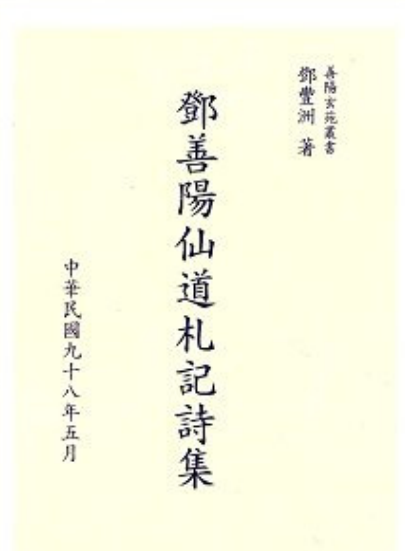 善陽玄苑叢書
鄧豐洲 著
鄧善陽仙道札記詩集
中華民國九十八年五月